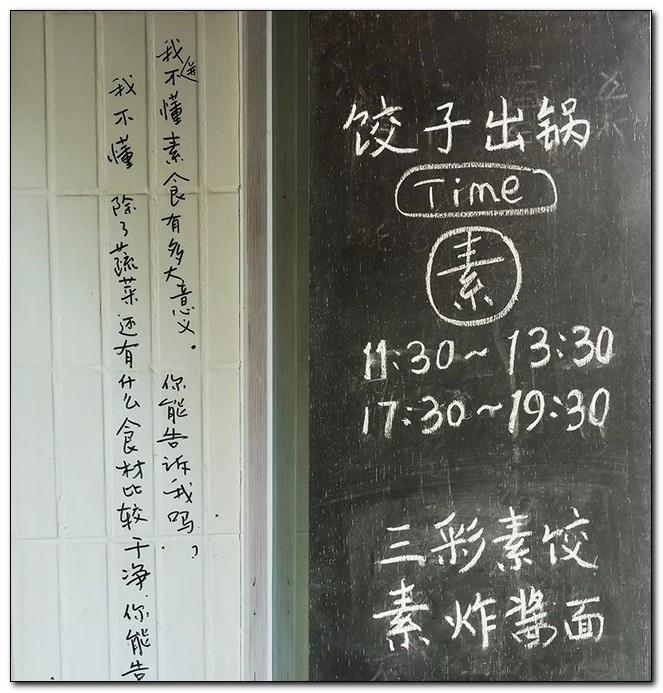 我并不懂素食有多大意义。你能告诉我吗？
我不懂 除了蔬菜还有什么食材比较干净.你能告
饺子出锅
Time
素
11:30~13:30
17:30~19:30
三彩素饺
素炸酱面